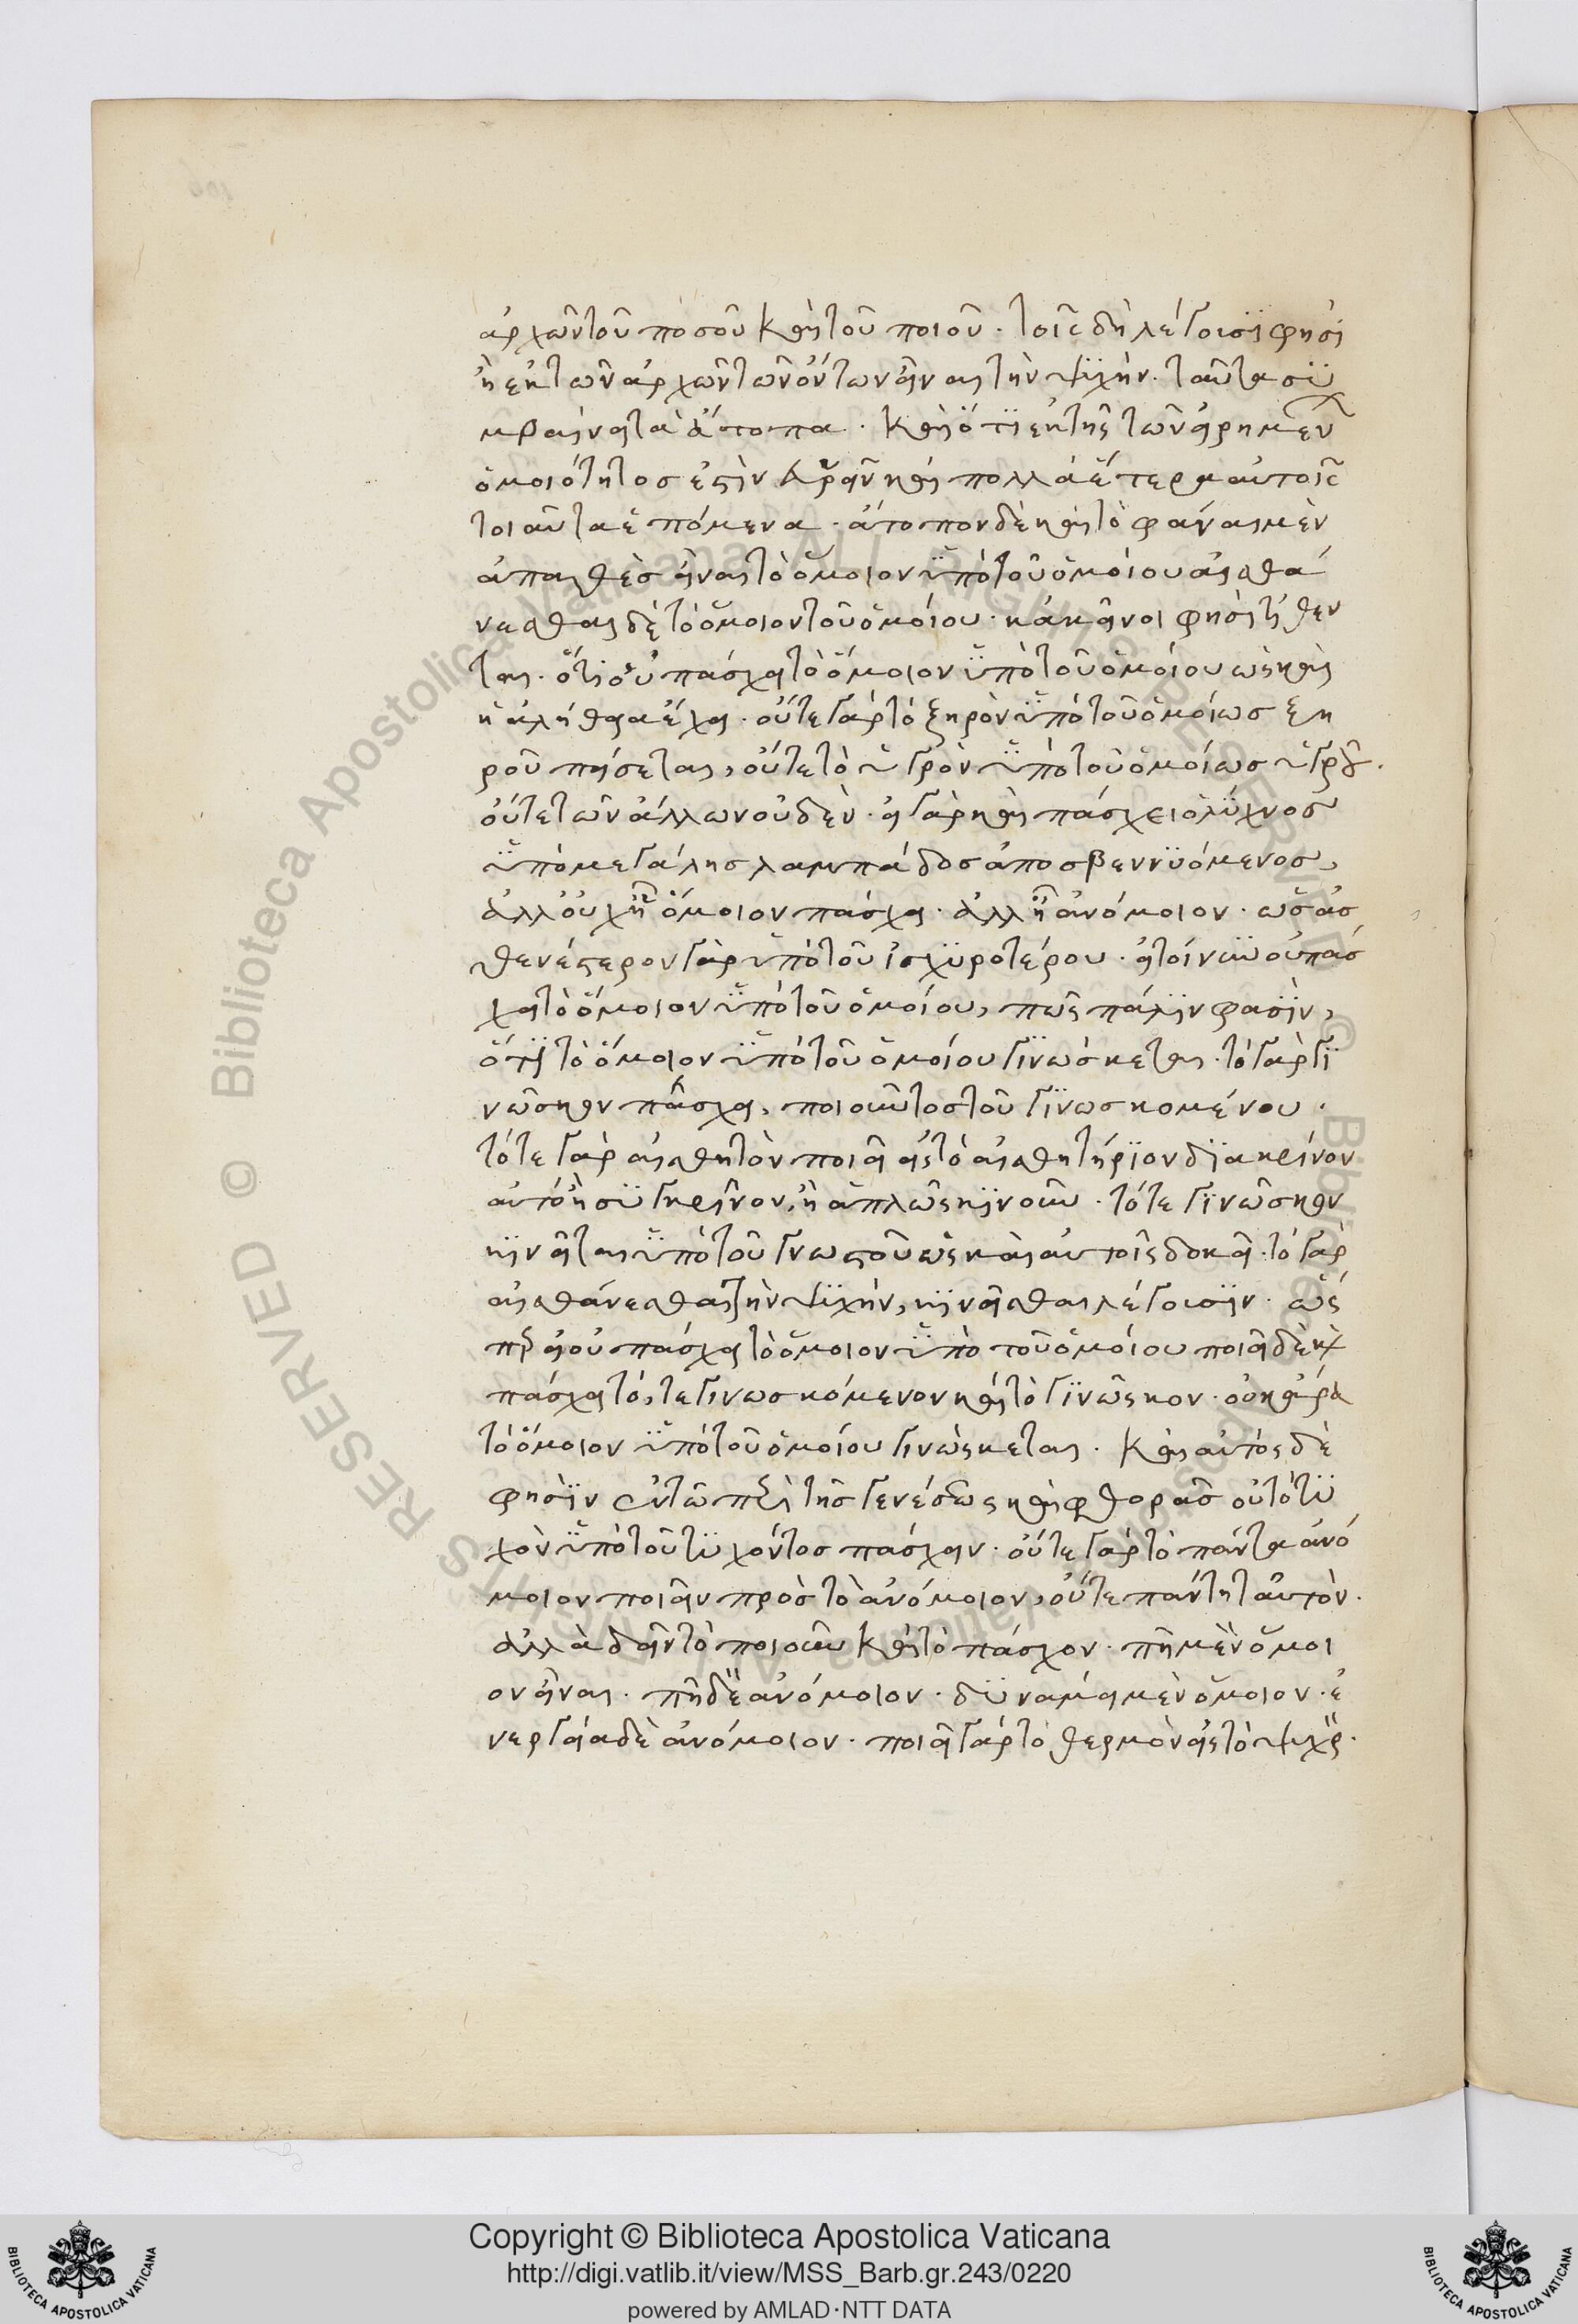 ἀρχῶν τοῦ ποσοῦ καὶ τοῦ ποιοῦ · τοῖς δὴ λέγουσϊ φησὶ
ἢ ἐκ τῶν ἀρχῶν τῶν ὄντων εἶναι τὴν ψϋχὴν · ταῦτα συ
μβαίνει τὰ ἄτοπα · καὶ ὅ τϊ ἐκ τῆς τῶν εἰρημένων
ὁμοιότητος ἐστὶν εὑρεῖν καὶ πολλὰ ἕτερα αὐτοῖς
τοιαῦτα ἑπόμενα · ἄτοπον δὲ καὶ τὸ φάναι μὲν
ἀπαθὲς εἶναι τὸ ὅμοιον ὑπὸ τοῦ ὁμοίου αἰσθά
νεσθαι δὲ τὸ ὅμοιον τοῦ ὁμοίου · κἀκεῖνοι φησὶ τίθεν
ται · ὅτι οὐ πάσχει τὸ ὅμοιον ὑπὸ τοῦ ὁμοίου ὡς καὶ
ἡ ἀλήθεια ἔχει · οὔτε γὰρ τὸ ξηρὸν ὑπὸ τοῦ ὁμοίως ξη
ροῦ πείσεται, οὔτε τὸ ὑγρὸν ὑπὸ τοῦ ὁμοίως ὑγροῦ ·
οὔτε τῶν ἄλλων οὐδὲν · εἰ γὰρ καὶ πάσχει ὁ λύχνος
ὑπὸ μεγάλης λαμπάδος ἀποσβεννϋόμενος,
ἀλλ' οὐχ ᾗ ὅμοιον πάσχει · ἀλλ' ᾗ ἀνόμοιον · ὡς ἀσ
θενέστερον γὰρ ὑπὸ τοῦ ἰσχϋροτέρου · εἰ τοίνυν οὐ πάσ
χει τὸ ὅμοιον ὑπὸ τοῦ ὁμοίου, πῶς πάλϊν φασὶν,
ὅτϊ τὸ ὅμοιον ὑπὸ τοῦ ὁμοίου γϊνώσκεται · τὸ γὰρ γϊ
νώσκον πάσχει, ποιοῦντος τοῦ γϊνωσκομένου ·
τότε γὰρ αἰσθητὸν ποιεῖ εἰς τὸ αἰσθητήρϊον δϊακρίνον
αὐτὸ ἢ συγκρῖνον, ἢ ἁπλῶς κϊνοῦν · τότε γϊνώσκον
κϊνεῖται ὑπὸ τοῦ γνωστοῦ ὡς καὶ αὐτοῖς δοκεῖ · τὸ γὰρ
αἰσθάνεσθαι τὴν ψϋχὴν, κϊνεῖσθαι λέγουσϊν · ὥσ
περ εἰ οὐ πάσχει τὸ ὅμοιον ὑπὸ τοῦ ὁμοίου ποιεῖ δὲ καὶ
πάσχει τό, τε γινωσκόμενον καὶ τὸ γϊνῶσκον · οὐκ ἄρα
τὸ ὅμοιον ὑπὸ τοῦ ὁμοίου γινώσκεται · καὶ αὐτὸς δὲ
φησϊν ἐν τῷ περὶ τῆς γενέσεως καὶ φθορᾶς οὐ τὸ τϋ
χὸν ὑπὸ τοῦ τϋχόντος πάσχειν · οὔτε γὰρ τὸ πάντα ἀνό
μοιον ποιεῖν πρὸς τὸ ἀνόμοιον, οὔτε πάντη ταὐτὸν ·
ἀλλὰ δεῖν τὸ ποιοῦν καὶ τὸ πάσχον · πῆ μὲν ὅμοι
ον εἶναι · πῆ δὲ ἀνόμοιον · δϋνάμει μὲν ὅμοιον · ἐ
νεργείᾳ δὲ ἀνόμοιον · ποιεῖ γὰρ τὸ θερμὸν εἰς τὸ ψυχρ ·
Copyright © Biblioteca Apostolica Vaticana
http://digi.vatlib.it/view/MSS_Barb.gr.243/0220
powered by AMLAD·NTT DATA
BIBLIOTECA APOSTOLICA VATICANA
BIBLIOTECA APOSTOLICA VATICANA